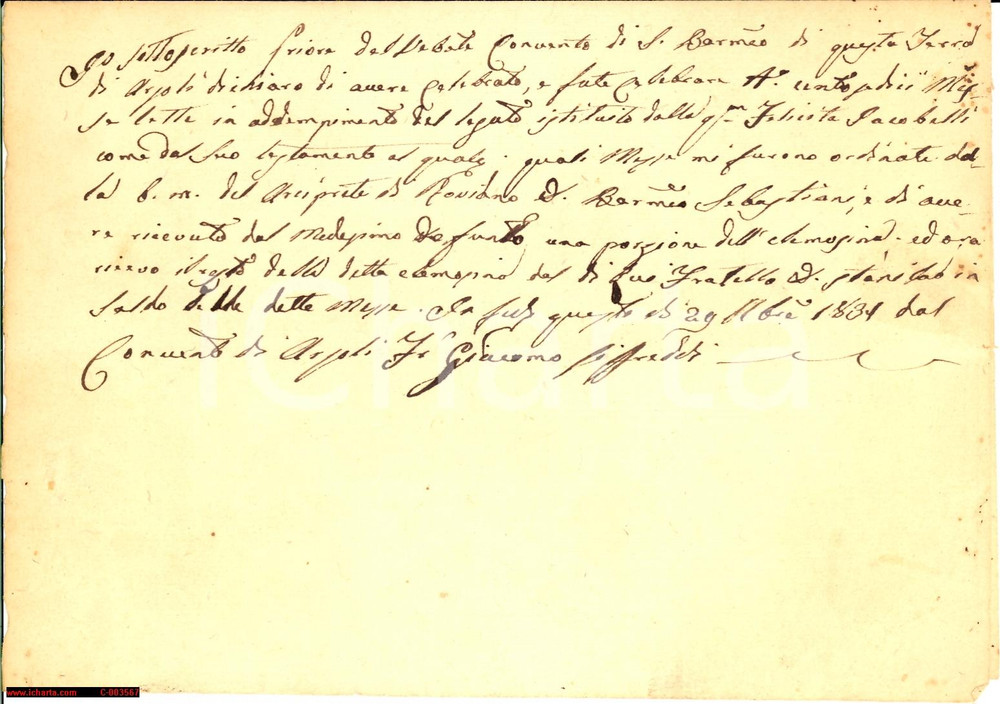 Io sottoscritto Priore del Veble Convento di S. Barmeo di questa Terra
di Arsoli dichiaro di avere celebrato, e fatte celebrare N. cento sedici Mes
se lette in addempimento del legato istituito dalla qm Felicita Jacobelli
come dal suo testamento al quale. quali Messe mi furono ordinate dal
la b. m. del Arciprete di Roviano D. Barmeo Sebastiani, e di ave
re ricevuto dal Medesimo defunto una porzione dell'elemosina. ed ora
ricevo il resto della detta elemosina dal di lui Fratello D. in
saldo delle dette Messe. In fede questo di 29 1834 dal
Convento di Arsoli Fr Giacomo Siffredi
iCharta
www.icharta.com C-003567